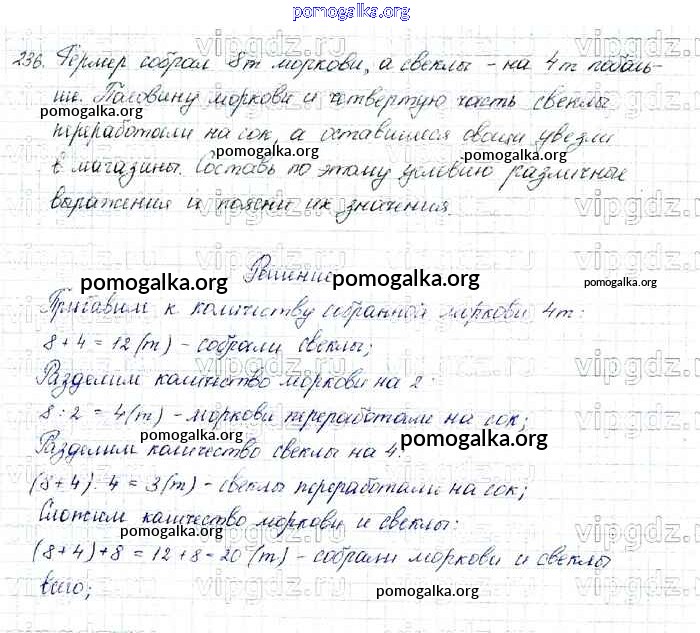 pomogalka.org
236. Фермер собрал 8т моркови, а свеклы - на 4т поболь-
ше. Половину моркови и четвертую часть свеклы
переработали на сок, а оставшиеся овощи увезли
pomogalka.org pomogalka.org
в магазины. Составь по этому условию различные
выражения и поясни их значения.
Решение
pomogalka.org pomogalka.org
Прибавим к количеству собранной моркови 4т:
8 + 4 = 12 (т) - собрали свеклы;
Разделим количество моркови на 2:
8 : 2 = 4 (т) - моркови переработали на сок;
pomogalka.org pomogalka.org
Разделим количество свеклы на 4.
(8+4) : 4 = 3 (т) - свеклы переработали на сок;
Сложим количество моркови и свеклы:
pomogalka.org
(8+4)+8 = 12+8=20 (т) - собрали моркови и свеклы
всего;
pomogalka.org
vipgdz.ru